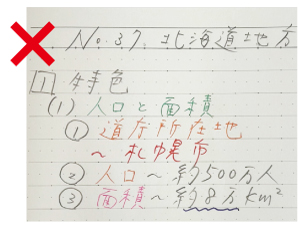 No.37. 北海道地方
1 特色
(1) 人口と面積
① 道庁所在地
～ 札幌市
② 人口～約500万人
③ 面積～約8万km²